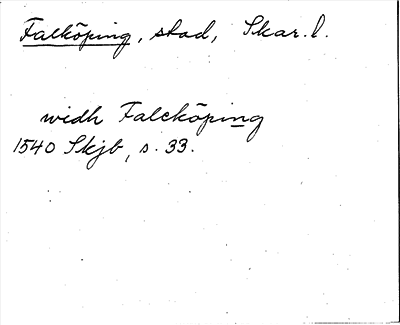 Falköping, stad, Skar. l.
widh Falcköping
1540 Skjb, s. 33.